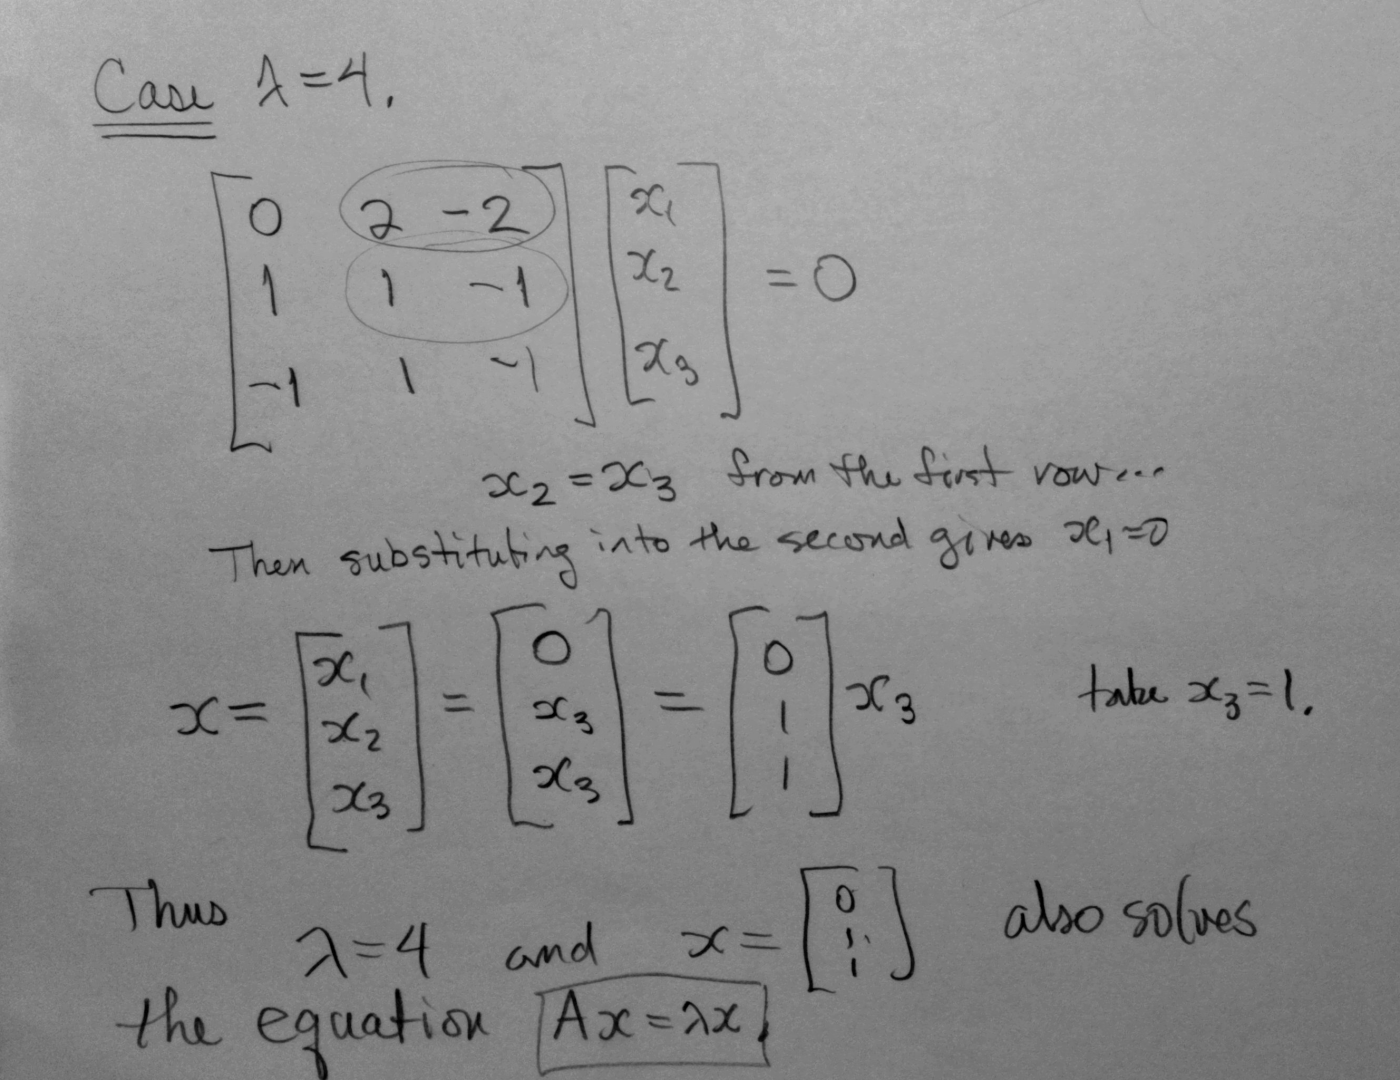 Case λ=4.
[0 2 -2; 1 1 -1; -1 1 -1] [x₁; x₂; x₃] = 0
x₂ = x₃ from the first row...
Then substituting into the second gives x₁=0
x = [x₁; x₂; x₃] = [0; x₃; x₃] = [0; 1; 1] x₃ take x₃=1.
Thus λ=4 and x = [0; 1; 1] also solves
the equation Ax=λx.